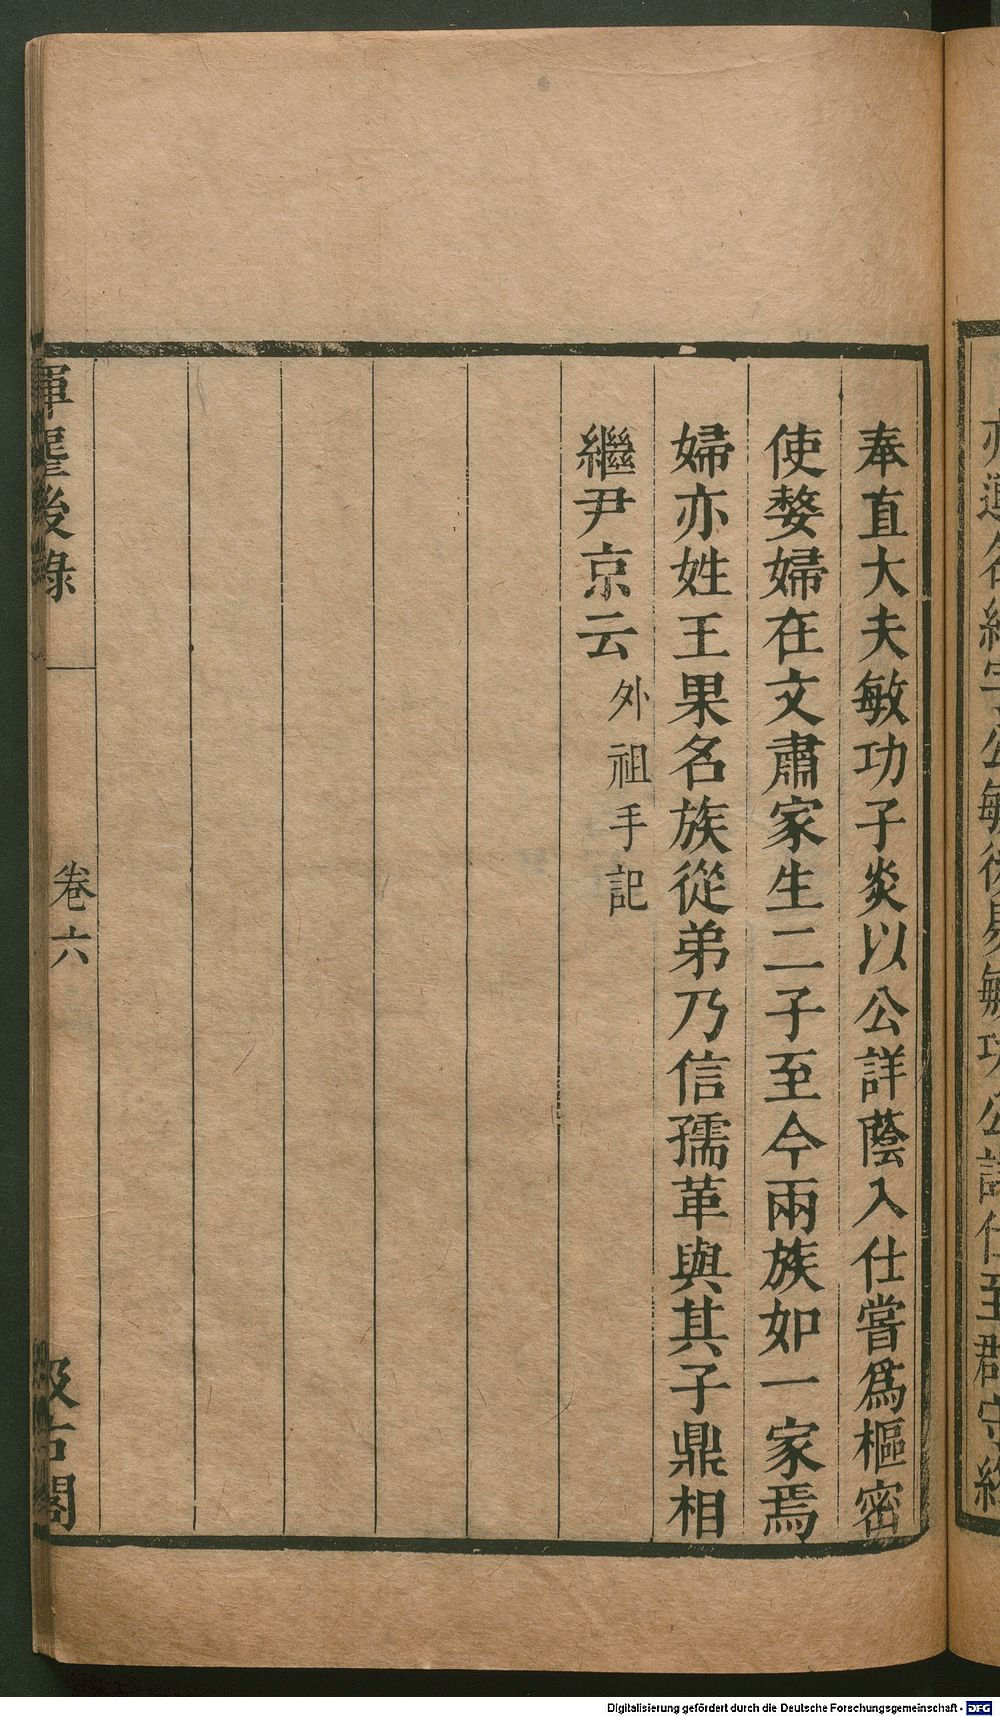 奉直大夫敏功子炎以公詳蔭入仕嘗爲樞密
使婺婦在文肅家生二子至今兩族如一家焉
婦亦姓王果名族從弟乃信孺革與其子鼎相
繼尹京云外祖手記
揮麈後錄
卷六
汲古閣
Digitalisierung gefördert durch die Deutsche Forschungsgemeinschaft - DFG